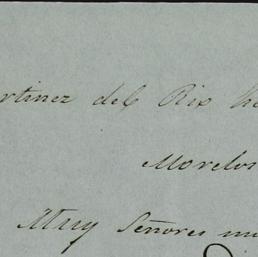 rtinez del Rio He
Morelos
Muy Señores mi